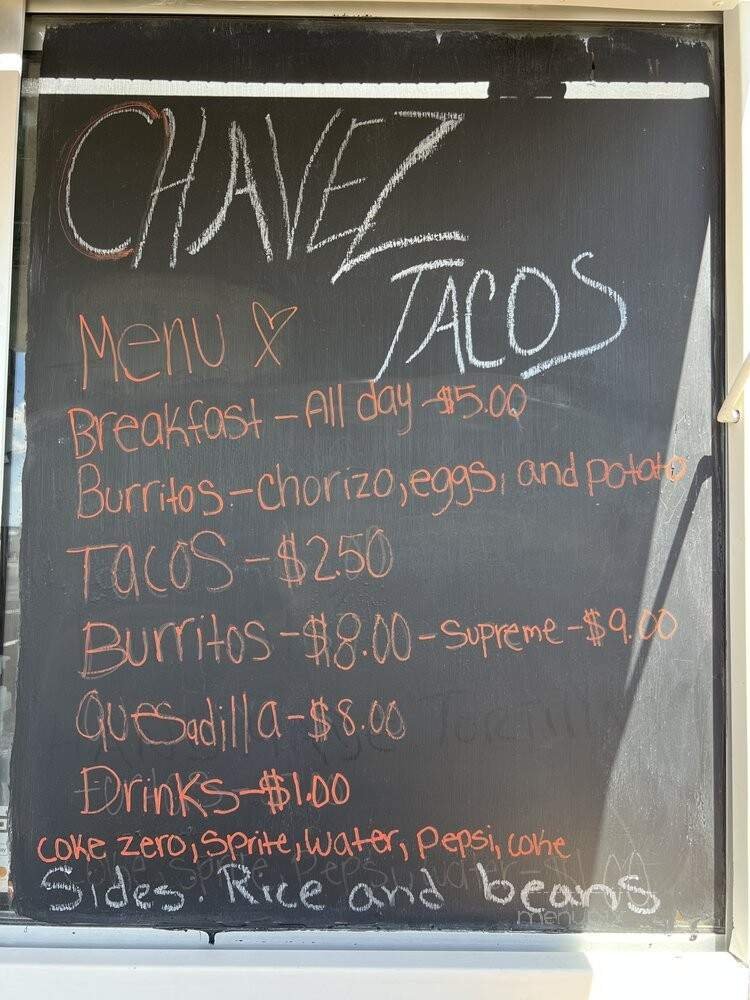 CHAVEZ
TACOS
Menu
Breakfast - All day - $5.00
Burritos - chorizo, eggs, and potato
Tacos - $2.50
Burritos - $8.00 - Supreme - $9.00
Quesadilla - $8.00
Drinks - $1.00
coke zero, Sprite, Water, Pepsi, coke
Sides. Rice and beans